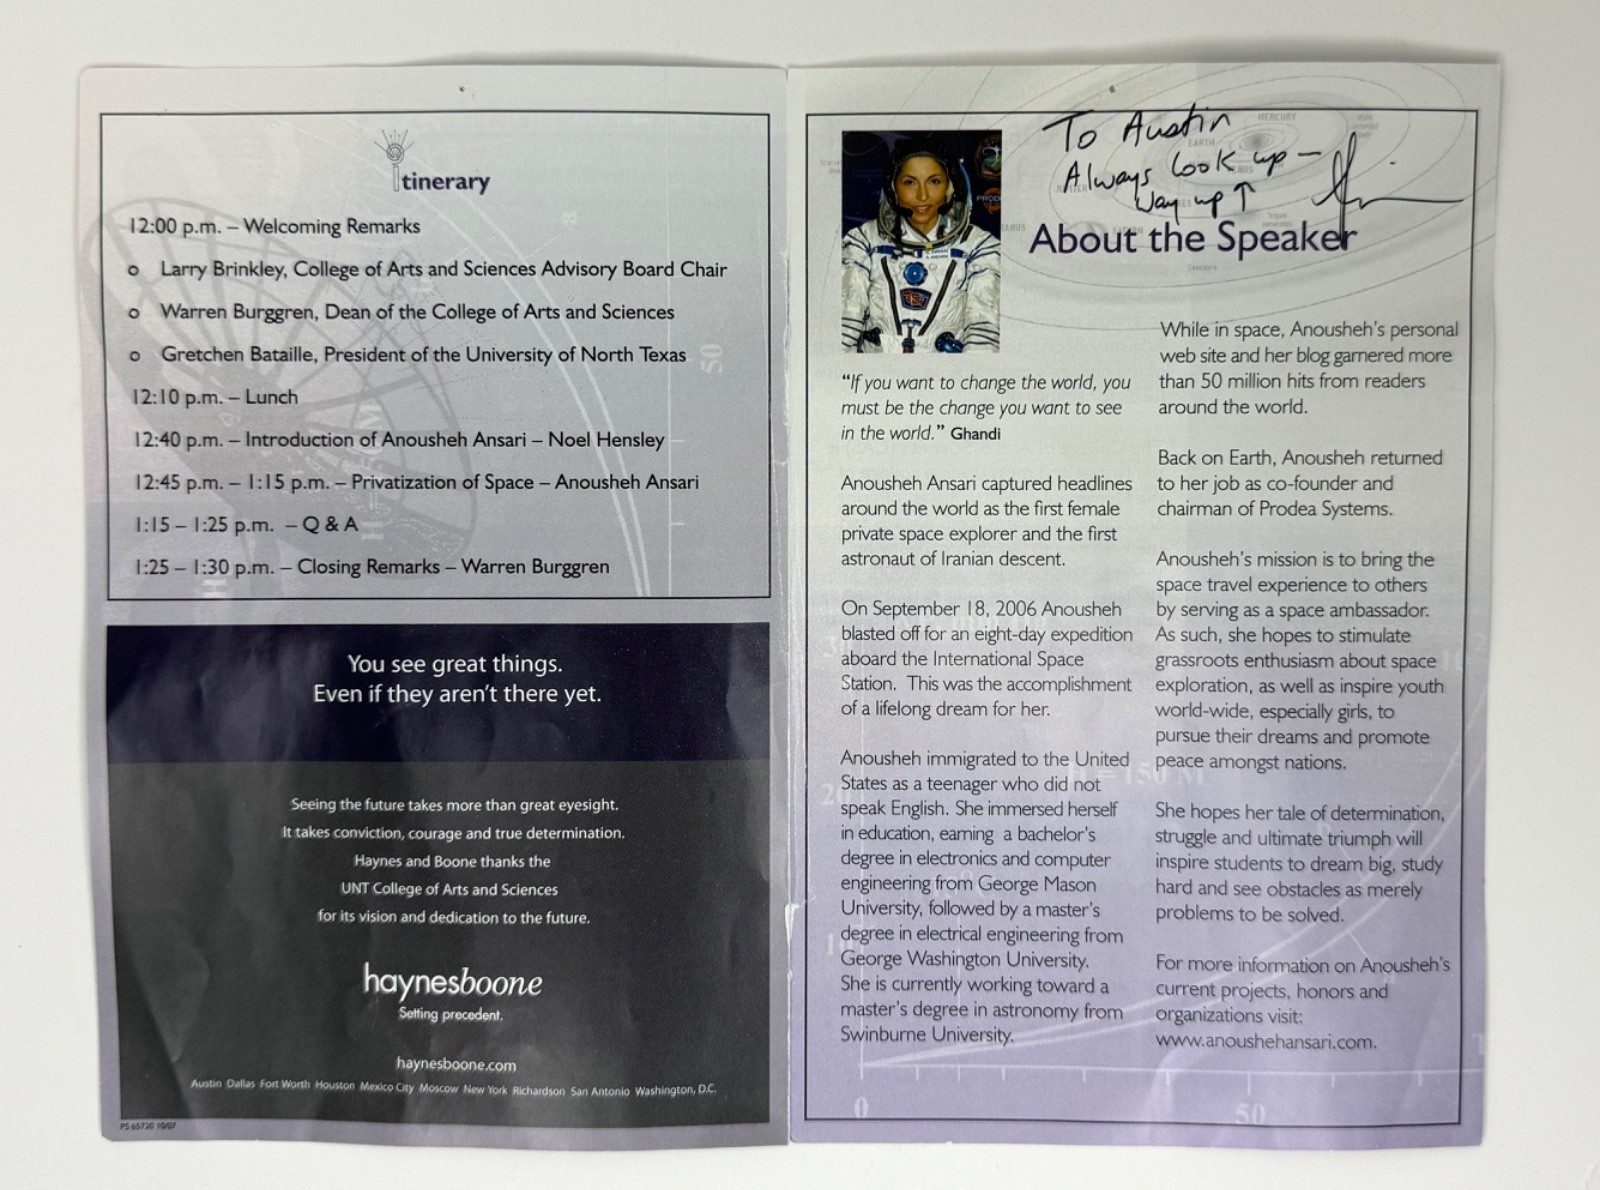 Itinerary
12:00 p.m. – Welcoming Remarks
o Larry Brinkley, College of Arts and Sciences Advisory Board Chair
o Warren Burggren, Dean of the College of Arts and Sciences
o Gretchen Bataille, President of the University of North Texas
12:10 p.m. – Lunch
12:40 p.m. – Introduction of Anousheh Ansari – Noel Hensley
12:45 p.m. – 1:15 p.m. – Privatization of Space – Anousheh Ansari
1:15 – 1:25 p.m. – Q & A
1:25 – 1:30 p.m. – Closing Remarks – Warren Burggren
50
You see great things.
Even if they aren't there yet.
Seeing the future takes more than great eyesight.
It takes conviction, courage and true determination.
Haynes and Boone thanks the
UNT College of Arts and Sciences
for its vision and dedication to the future.
haynesboone
Setting precedent.
haynesboone.com
Austin Dallas Fort Worth Houston Mexico City Moscow New York Richardson San Antonio Washington, D.C.
PS 65720 10/07
To Austin
Always look up –
way up ↑
MERCURY
EARTH
About the Speaker
"If you want to change the world, you
must be the change you want to see
in the world." Ghandi
Anousheh Ansari captured headlines
around the world as the first female
private space explorer and the first
astronaut of Iranian descent.
On September 18, 2006 Anousheh
blasted off for an eight-day expedition
aboard the International Space
Station. This was the accomplishment
of a lifelong dream for her.
Anousheh immigrated to the United
States as a teenager who did not
speak English. She immersed herself
in education, earning a bachelor's
degree in electronics and computer
engineering from George Mason
University, followed by a master's
degree in electrical engineering from
George Washington University.
She is currently working toward a
master's degree in astronomy from
Swinburne University.
While in space, Anousheh's personal
web site and her blog garnered more
than 50 million hits from readers
around the world.
Back on Earth, Anousheh returned
to her job as co-founder and
chairman of Prodea Systems.
Anousheh's mission is to bring the
space travel experience to others
by serving as a space ambassador.
As such, she hopes to stimulate
grassroots enthusiasm about space
exploration, as well as inspire youth
world-wide, especially girls, to
pursue their dreams and promote
peace amongst nations.
She hopes her tale of determination,
struggle and ultimate triumph will
inspire students to dream big, study
hard and see obstacles as merely
problems to be solved.
For more information on Anousheh's
current projects, honors and
organizations visit:
www.anoushehansari.com.
0
50